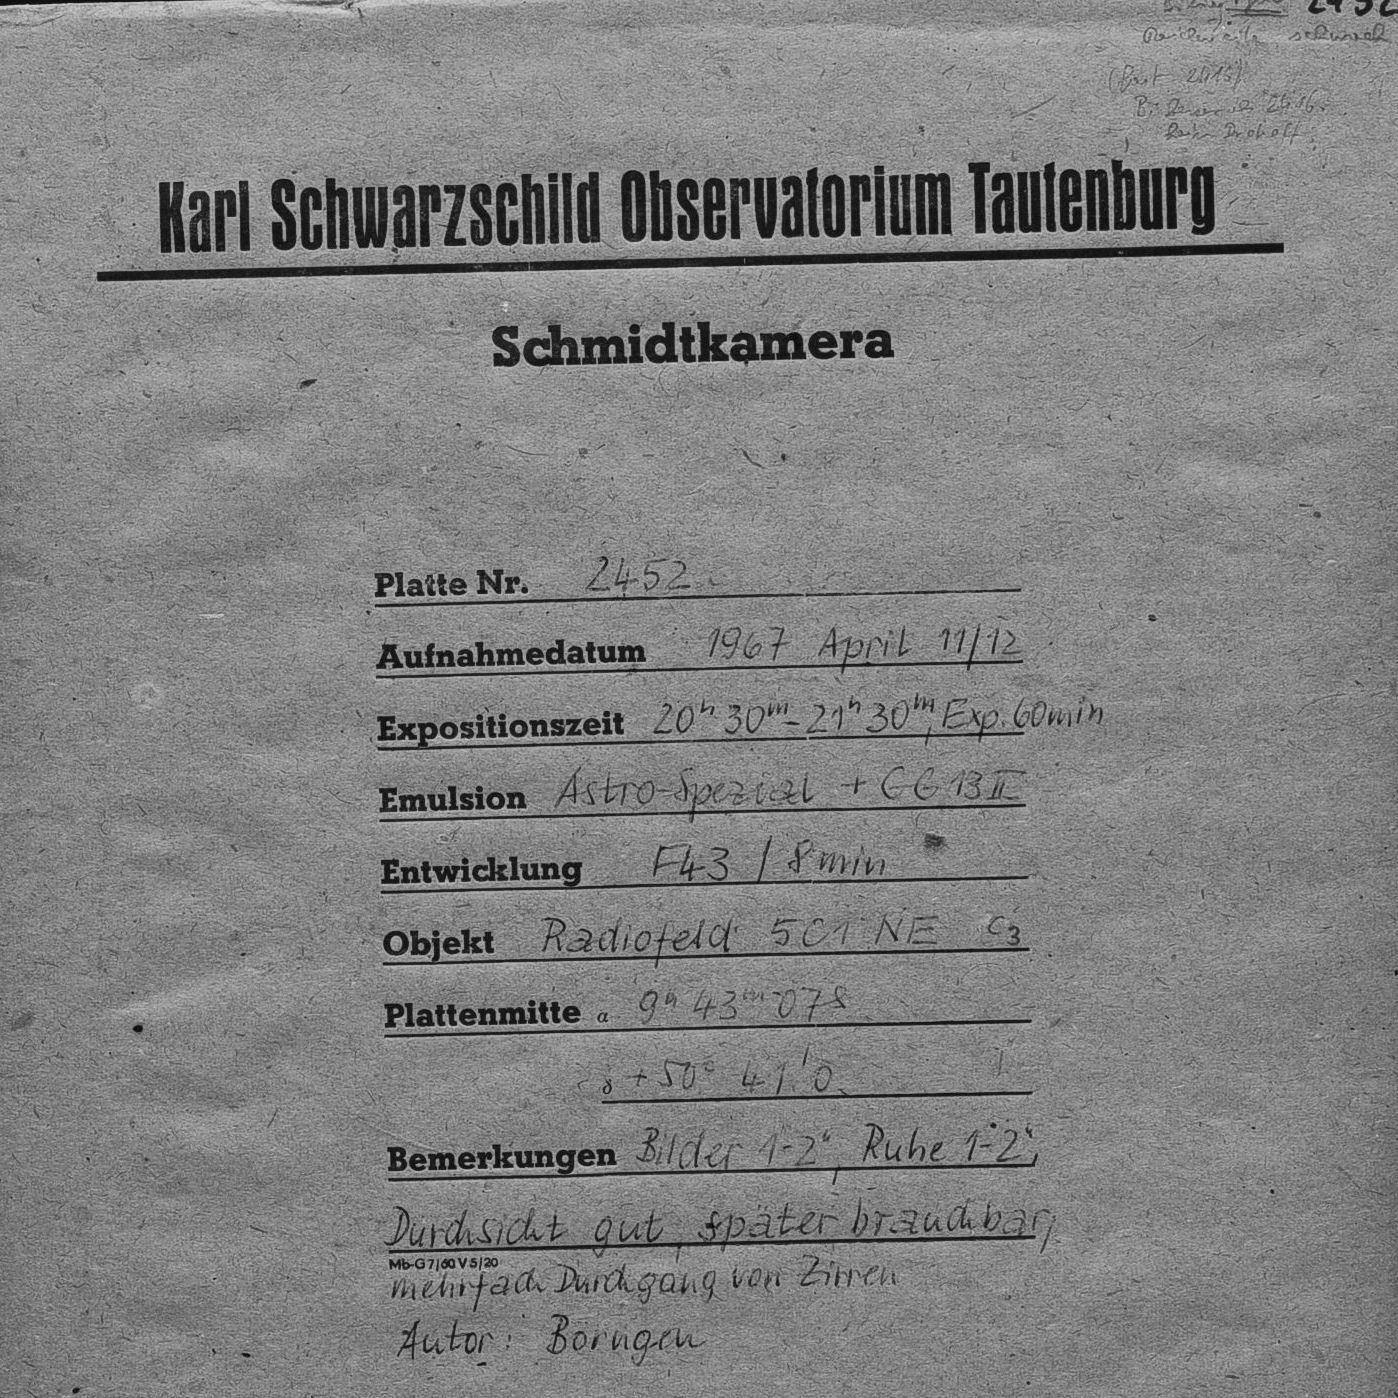 2452
schwach
Karl Schwarzschild Observatorium Tautenburg
Schmidtkamera
Platte Nr. 2452
Aufnahmedatum 1967 April 11/12
Expositionszeit 20h 30m - 21h 30m, Exp. 60min
Emulsion Astro-Spezial + GG 13 II
Entwicklung F43 / 8min
Objekt Radiofeld 5C1 NE C3
Plattenmitte α 9h 43m 07s
δ +50° 41'0
Bemerkungen Bilder 1-2", Ruhe 1-2",
Durchsicht gut, später brauchbar,
Mb-G 7/60 V 5/20
mehrfach Durchgang von Zirren
Autor: Börngen